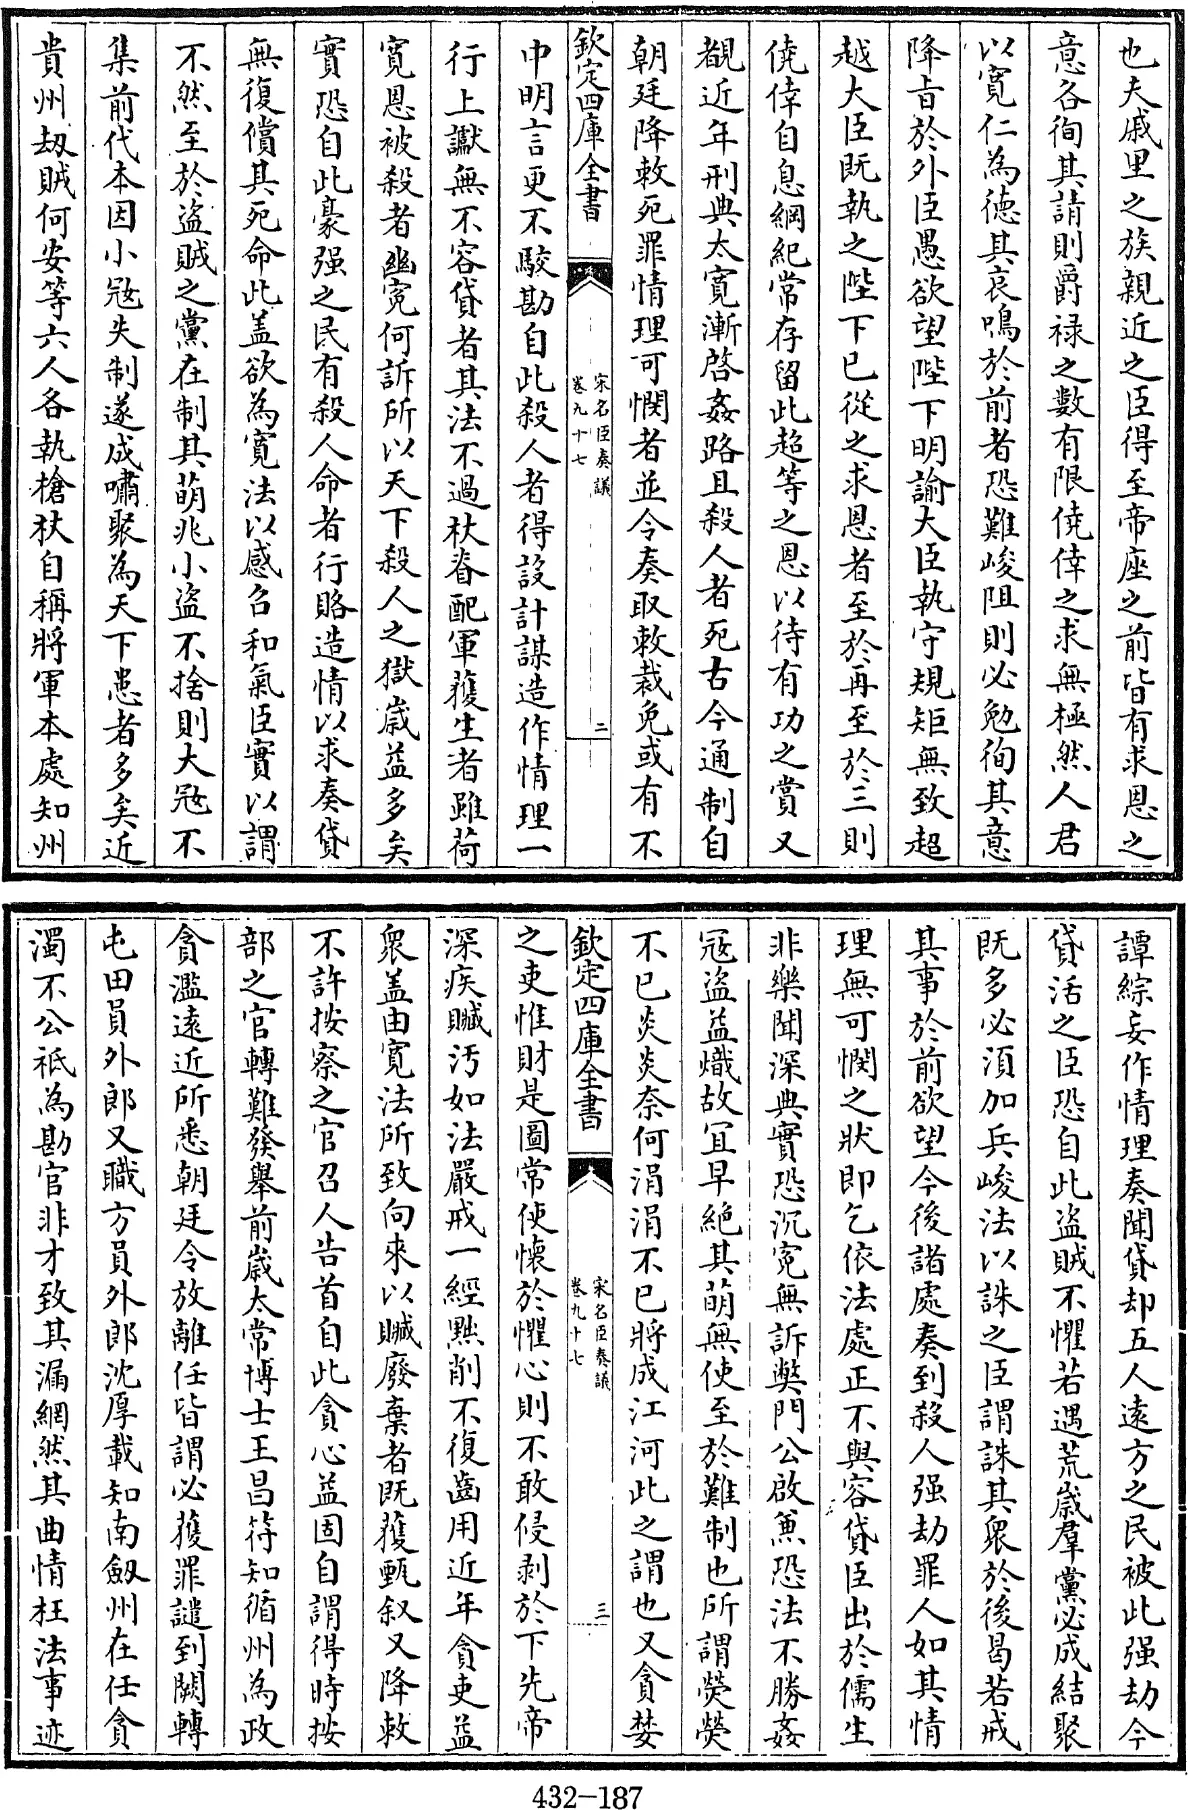 也夫戚里之族親近之臣得至帝座之前皆有求恩之
意各徇其請則爵禄之數有限僥倖之求無極然人君
以寛仁為徳其哀鳴於前者恐難峻阻則必勉徇其意
降旨於外臣愚欲望陛下明諭大臣執守規矩無致超
越大臣既執之陛下已從之求恩者至於再至於三則
僥倖自息綱紀常存留此超等之恩以待有功之賞又
覩近年刑典太寛漸啓姦路且殺人者死古今通制自
朝廷降敕死罪情理可憫者並令奏取敕裁免或有不
欽定四庫全書
宋名臣奏議
卷九十七
二
中明言更不駮勘自此殺人者得設計謀造作情理一
行上讞無不容貸者其法不過杖脊配軍獲生者雖荷
寛恩被殺者幽寃何訴所以天下殺人之獄歳益多矣
實恐自此豪强之民有殺人命者行賂造情以求奏貸
無復償其死命此盖欲為寛法以感召和氣臣實以謂
不然至於盗賊之黨在制其萌兆小盗不捨則大冦不
集前代本因小冦失制遂成嘯聚為天下患者多矣近
貴州刼賊何安等六人各執槍杖自稱將軍本處知州
譚綜妄作情理奏聞貸却五人逺方之民被此强劫今
貸活之臣恐自此盗賊不懼若遇荒歳羣黨必成結聚
既多必須加兵峻法以誅之臣謂誅其衆於後曷若戒
其事於前欲望今後諸處奏到殺人强劫罪人如其情
理無可憫之狀即乞依法處正不與容貸臣出於儒生
非樂聞深典實恐沉寃無訴獘門公啟兼恐法不勝姦
冦盗益熾故宜早絶其萌無使至於難制也所謂熒熒
不已炎炎奈何涓涓不已將成江河此之謂也又貪婪
欽定四庫全書
宋名臣奏議
卷九十七
三
之吏惟財是圖常使懷於懼心則不敢侵剥於下先帝
深疾贓汚如法嚴戒一經黜削不復齒用近年貪吏益
衆盖由寛法所致向來以贓廢棄者既獲甄叙又降敕
不許按察之官召人告首自此貪心益固自謂得時按
部之官轉難發舉前歳太常博士王昌符知循州為政
貪濫逺近所悉朝廷令放離任皆謂必獲罪譴到闕轉
屯田員外郎又職方員外郎沈厚載知南劔州在任貪
濁不公祇為勘官非才致其漏網然其曲情枉法事迹
432-187